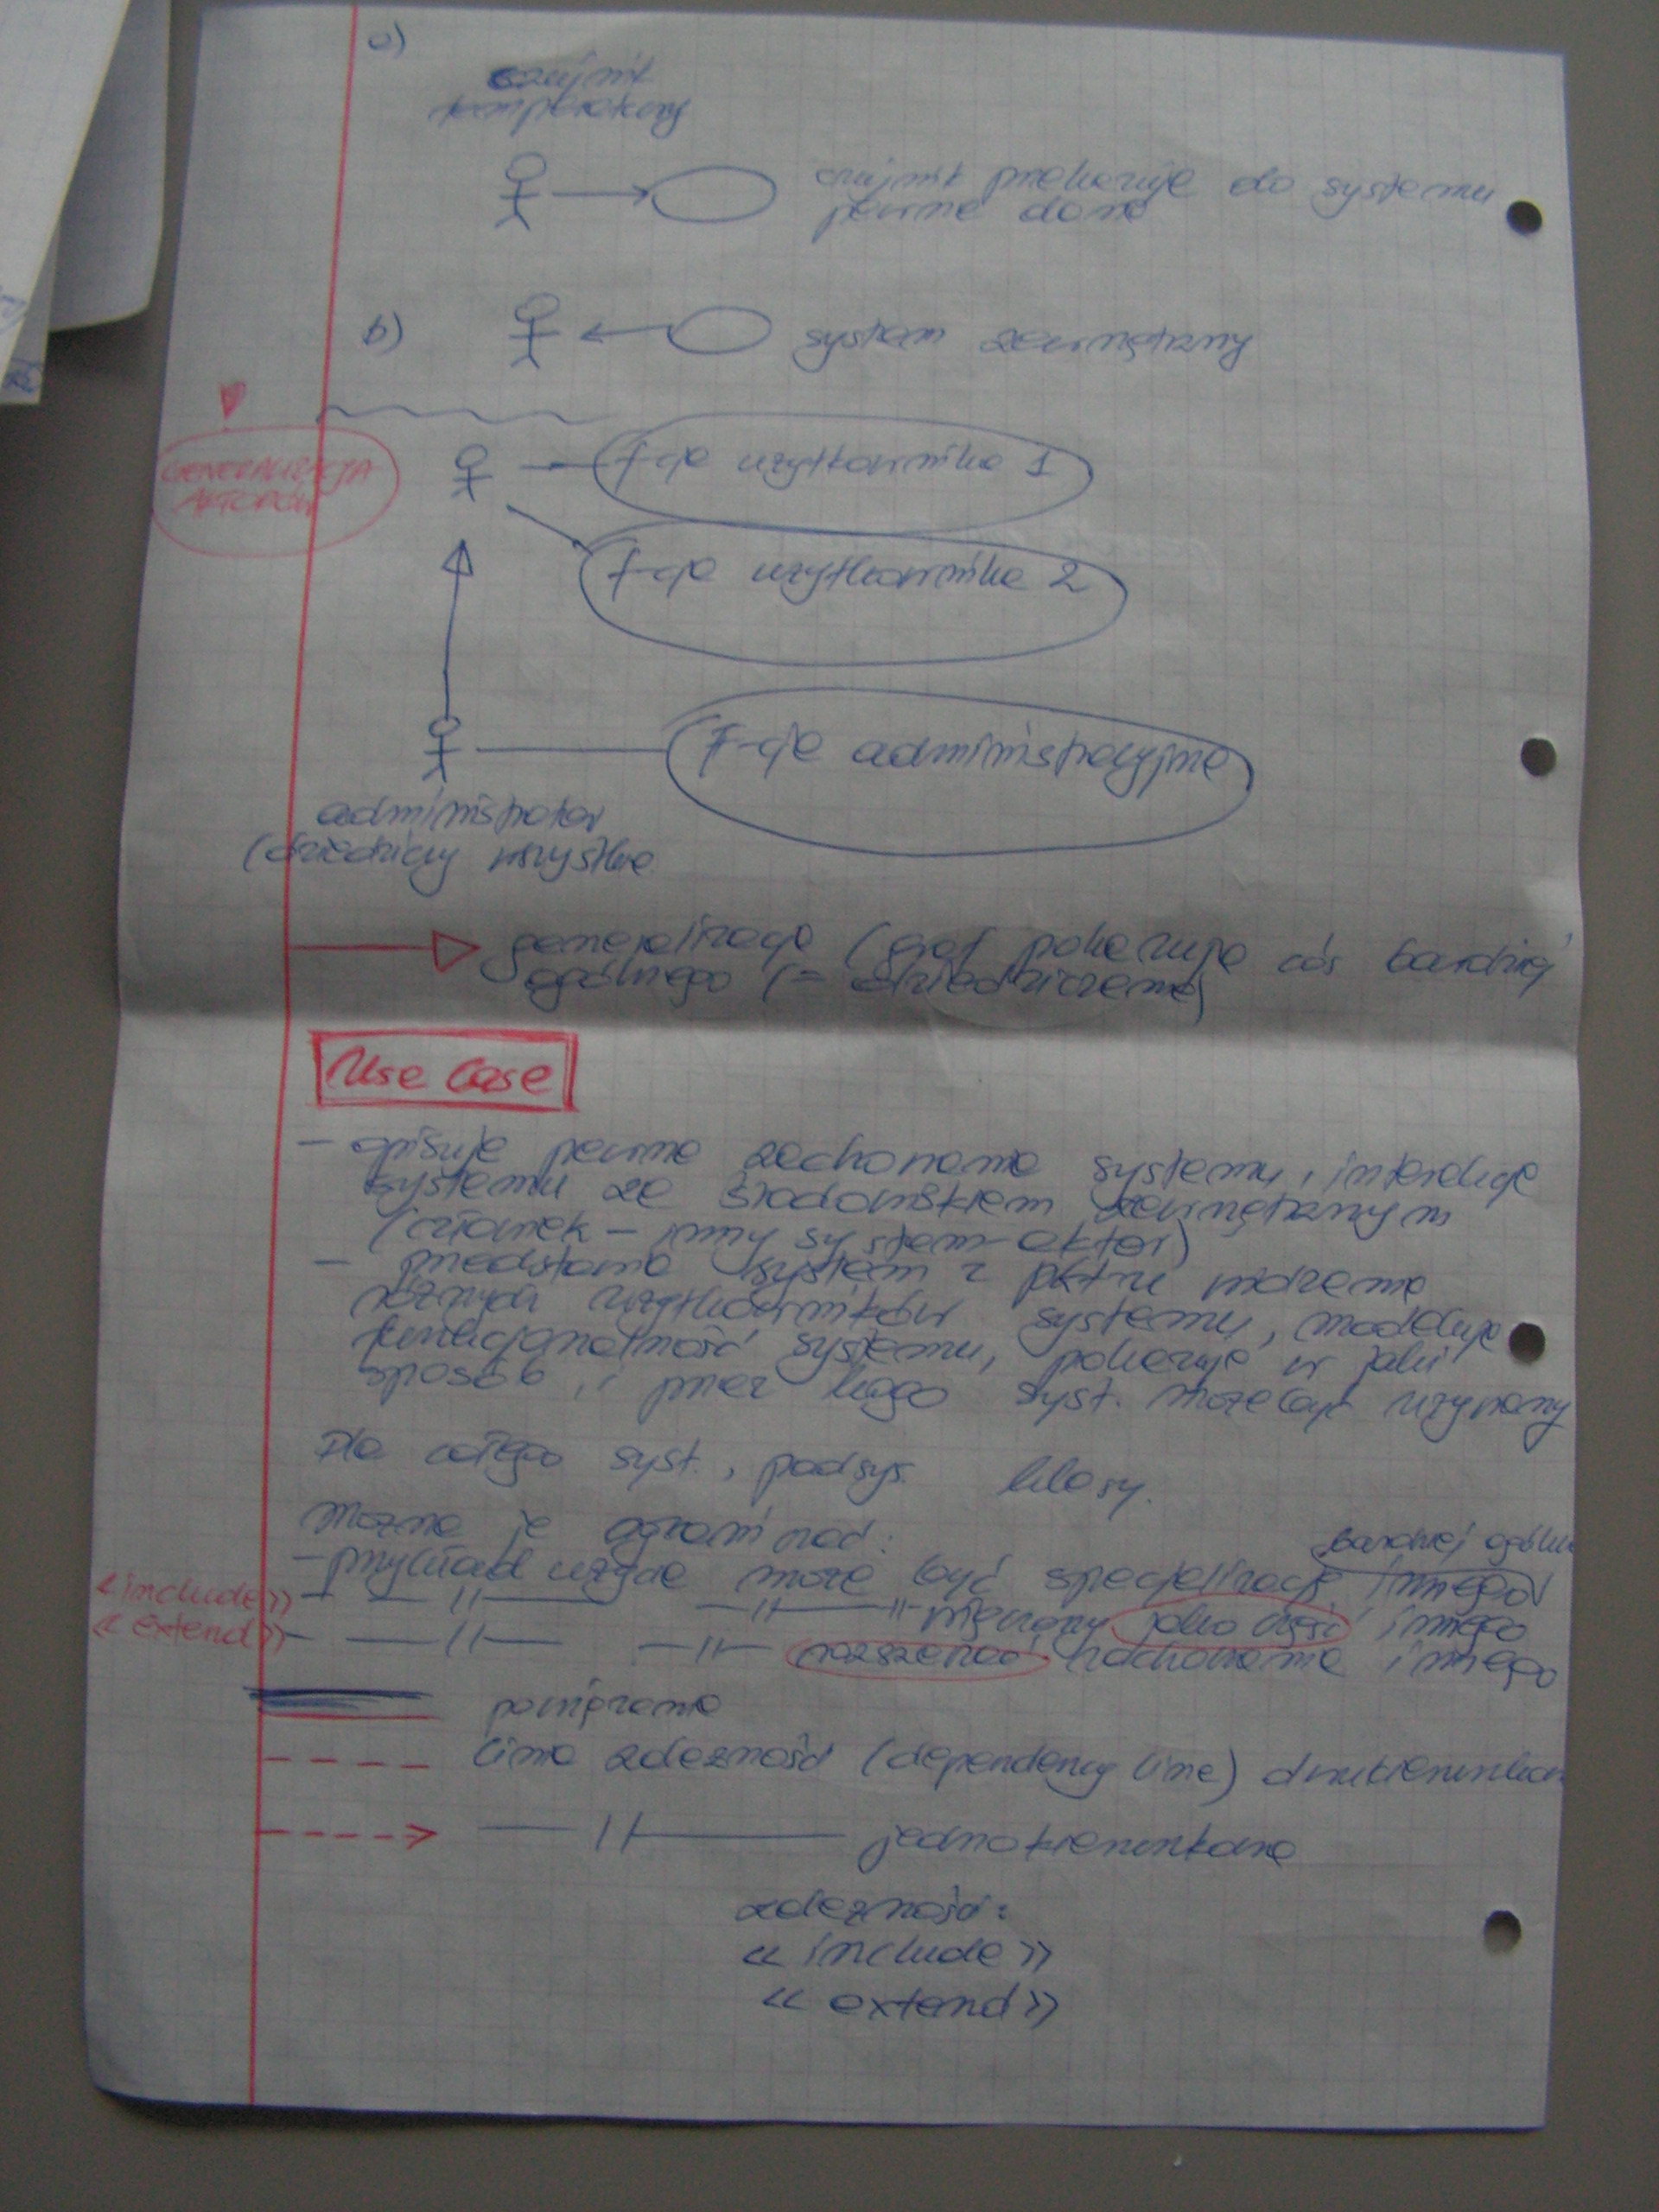 a)
czujnik
temperatury
czujnik przekazuje do systemu
pewne dane
b)
system zewnętrzny
GENERALIZACJA
AKTORÓW
f-cje użytkownika 1
f-cje użytkownika 2
F-cje administracyjne
administrator
(dziedziczy wszystkie
generalizacja (grot pokazuje coś bardziej
ogólnego (= dziedziczenie)
Use Case
- opisuje pewne zachowanie systemu, interakcje
systemu ze środowiskiem zewnętrznym
(człowiek - inny system - aktor)
- przedstawia system z pktu widzenia
różnych użytkowników systemu, modeluje
funkcjonalność systemu, pokazuje w jaki
sposób i przez kogo syst. może być używany
Dla całego syst., podsys. klasy.
Można je
bardziej
- przykład użycia może być specjalizacją innego
<<include>> - —||— —||— —||— włączony jako część innego
<<extend>> - —||— —||— rozszerzać zachowanie innego
powiązanie
linia zależności (dependency line) dwukierunkowa
—||— jednokierunkowa
zależności:
<< include >>
<< extend >>